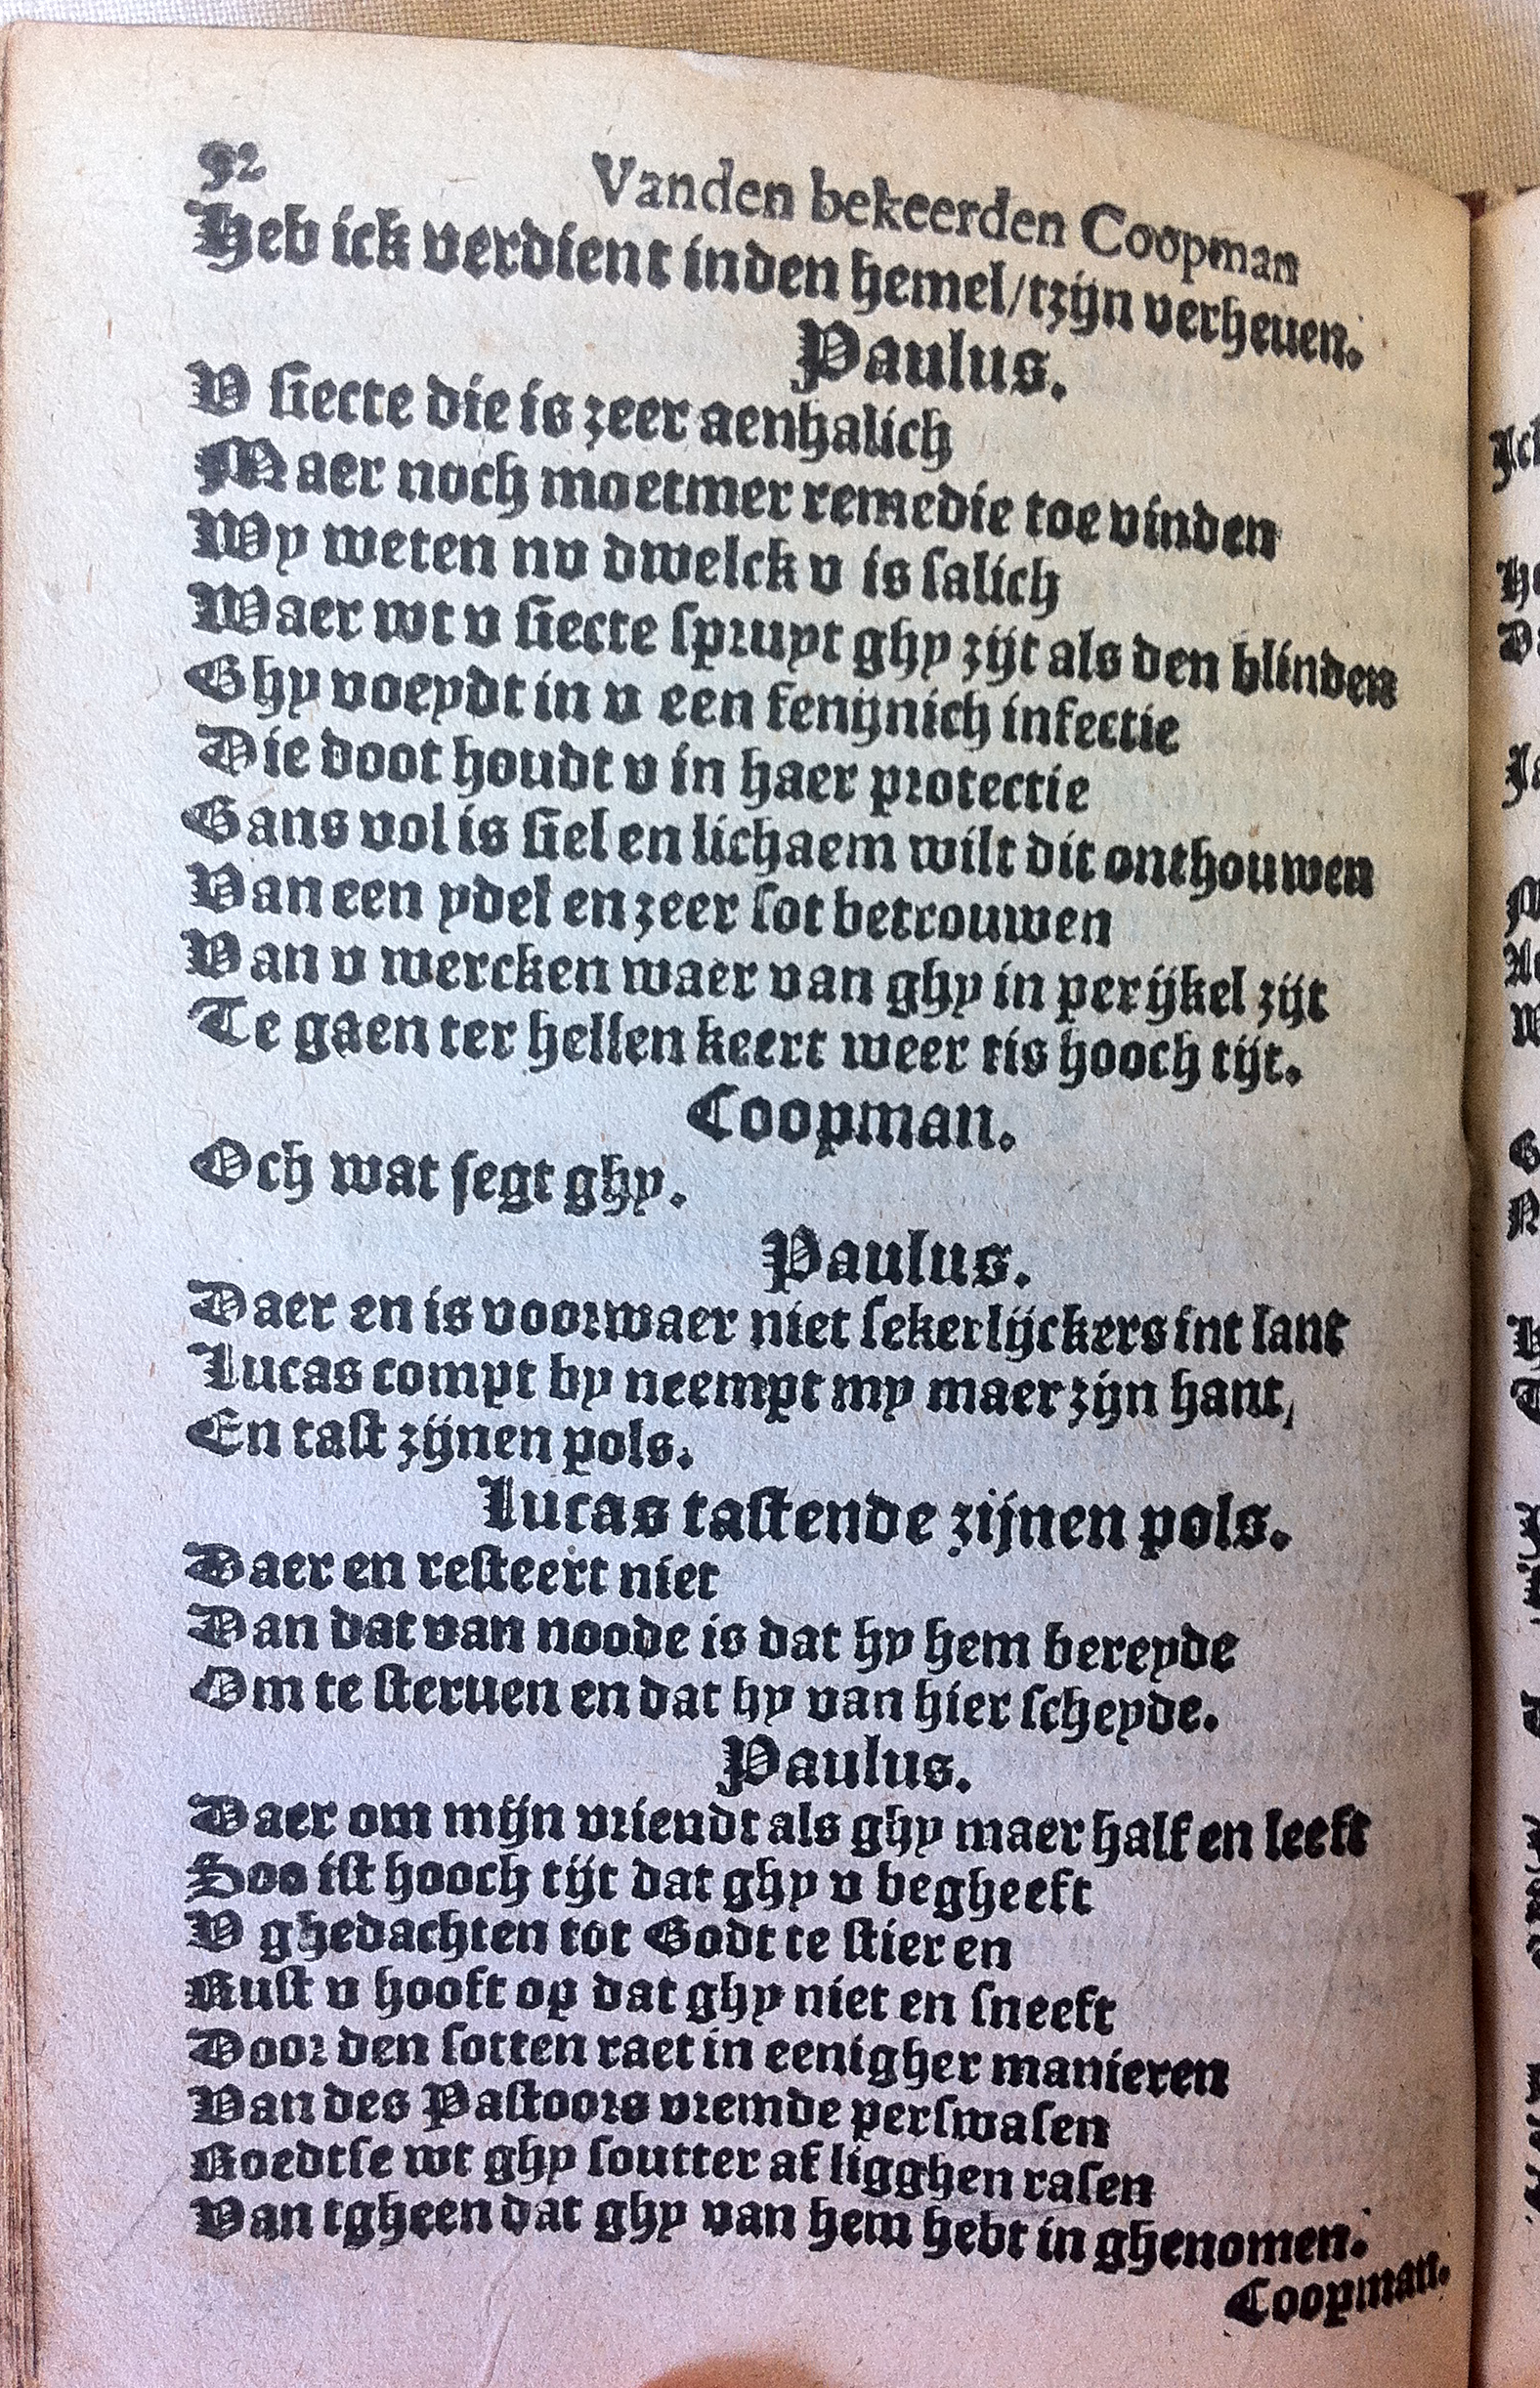 92
Vanden bekeerden Coopman
Heb ick verdient inden hemel/tzijn verheuen.
Paulus.
V siecte die is zeer aenhalich
Maer noch moetmer remedie toe vinden
Wy weten nv dwelck v is salich
Waer wt v siecte spruyt ghy zijt als den blinden
Ghy voeydt in v een fenijnich infectie
Die doot houdt v in haer protectie
Gans vol is siel en lichaem wilt dit onthouwen
Van een ydel en zeer sot betrouwen
Van v wercken waer van ghy in perijkel zijt
Te gaen ter hellen keert weer tis hooch tijt.
Coopman.
Och wat segt ghy.
Paulus.
Daer en is voorwaer niet sekerlijckers int lant
Lucas compt by neempt my maer zijn hant,
En tast zijnen pols.
Lucas tastende zijnen pols.
Daer en resteert niet
Dan dat van noode is dat hy hem bereyde
Om te steruen en dat hy van hier scheyde.
Paulus.
Daer om mijn vriendt als ghy maer half en leeft
Soo ist hooch tijt dat ghy v begheeft
V ghedachten tot Godt te stieren
Rust v hooft op dat ghy niet en sneeft
Door den sotten raet in eenigher manieren
Van des Pastoors vremde perswasen
Roedtse wt ghy soutter af ligghen rasen
Van tgheen dat ghy van hem hebt in ghenomen.
Coopman.